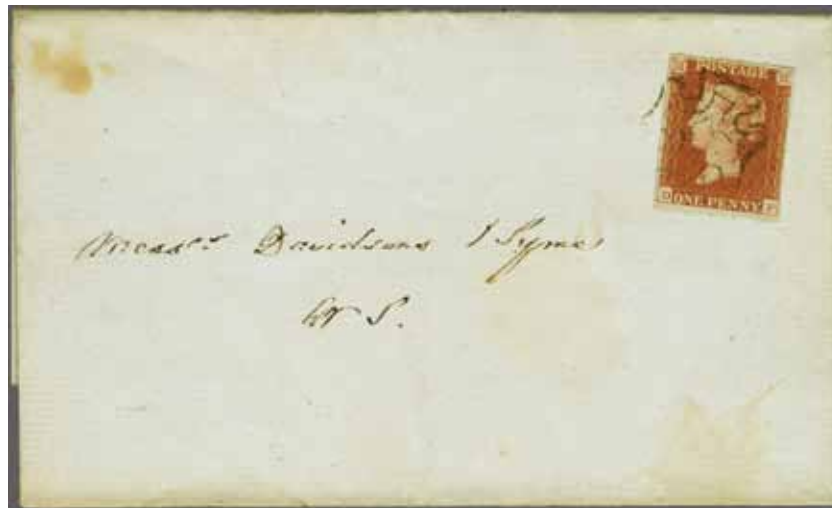 POSTAGE
ONE PENNY
Messrs Davidsons & Syme
W S.